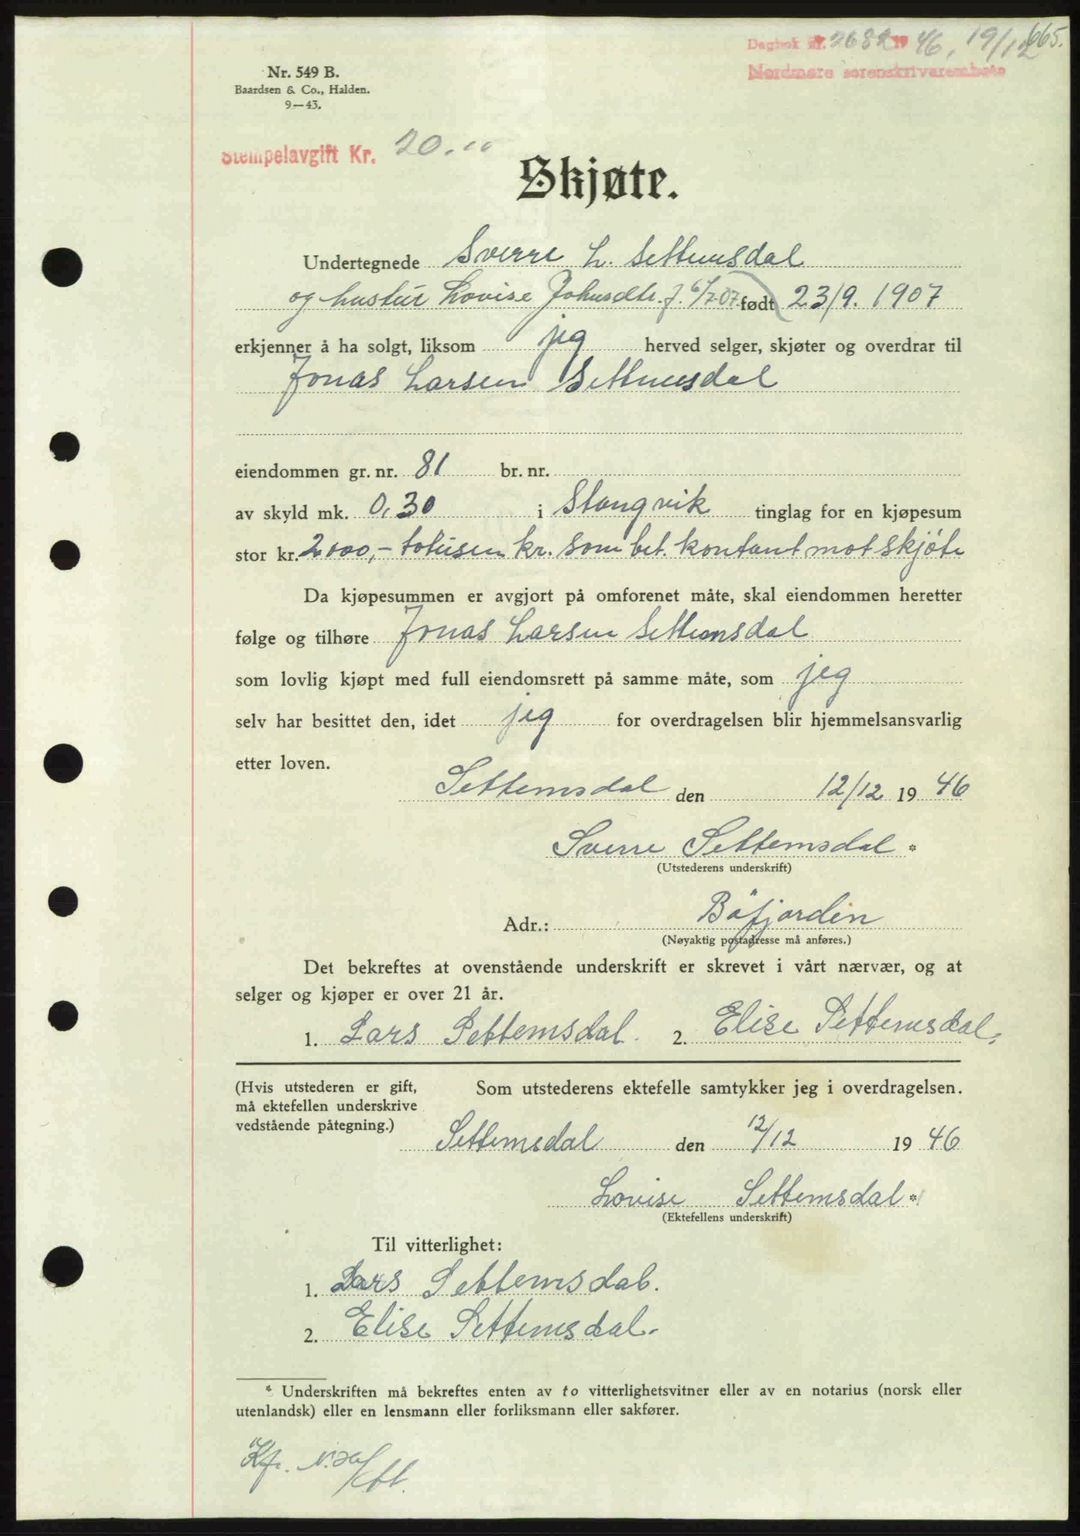 Dagbok nr. 2682 19 46, 19/12 665.
Nordmøre sorenskriverembete
Nr. 549 B.
Baardsen & Co., Halden.
9—43.
Stempelavgift Kr. 20.00
Skjøte.
Undertegnede Sverre L. Settemsdal
og hustru Lovise Johnsdtr. f. 6/7-07. født 23/9. 1907
erkjenner å ha solgt, liksom jeg herved selger, skjøter og overdrar til
Jonas Larsen Settemsdal
eiendommen gr. nr. 81 br. nr.
av skyld mk. 0,30 i Stangvik tinglag for en kjøpesum
stor kr. 2000,- totusen kr. som bet. kontant mot skjøte
Da kjøpesummen er avgjort på omforenet måte, skal eiendommen heretter
følge og tilhøre Jonas Larsen Settemsdal
som lovlig kjøpt med full eiendomsrett på samme måte, som jeg
selv har besittet den, idet jeg for overdragelsen blir hjemmelsansvarlig
etter loven.
Settemsdal den 12/12 19 46
Sverre Settemsdal *
(Utstederens underskrift)
Adr.: Böfjorden
(Nøyaktig postadresse må anføres.)
Det bekreftes at ovenstående underskrift er skrevet i vårt nærvær, og at
selger og kjøper er over 21 år.
1. Lars Settemsdal. 2. Elise Settemsdal.
(Hvis utstederen er gift, Som utstederens ektefelle samtykker jeg i overdragelsen.
må ektefellen underskrive
vedstående påtegning.)
Settemsdal den 12/12 19 46
Lovise Settemsdal *
(Ektefellens underskrift)
Til vitterlighet:
1. Lars Settemsdal.
2. Elise Settemsdal.
* Underskriften må bekreftes enten av to vitterlighetsvitner eller av en notarius (norsk eller
utenlandsk) eller en lensmann eller forliksmann eller sakfører.
Kf.